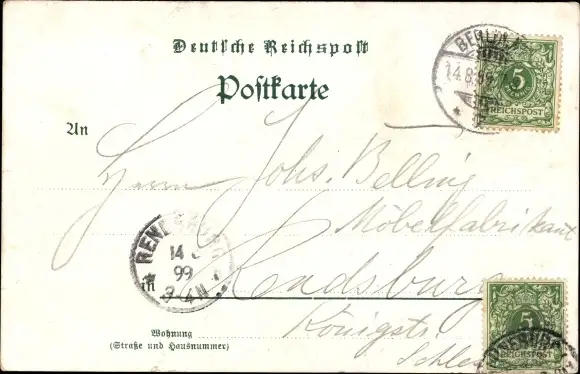 Deutsche Reichspost
Postkarte
BERLIN
14 8 99
5
REICHSPOST
An
Herrn Johs. Belling
Möbelfabrikant
RENDSBURG
14
99
3-4N
in Rendsburg
Königstr.
Wohnung
(Straße und Hausnummer)
5
REICHSPOST